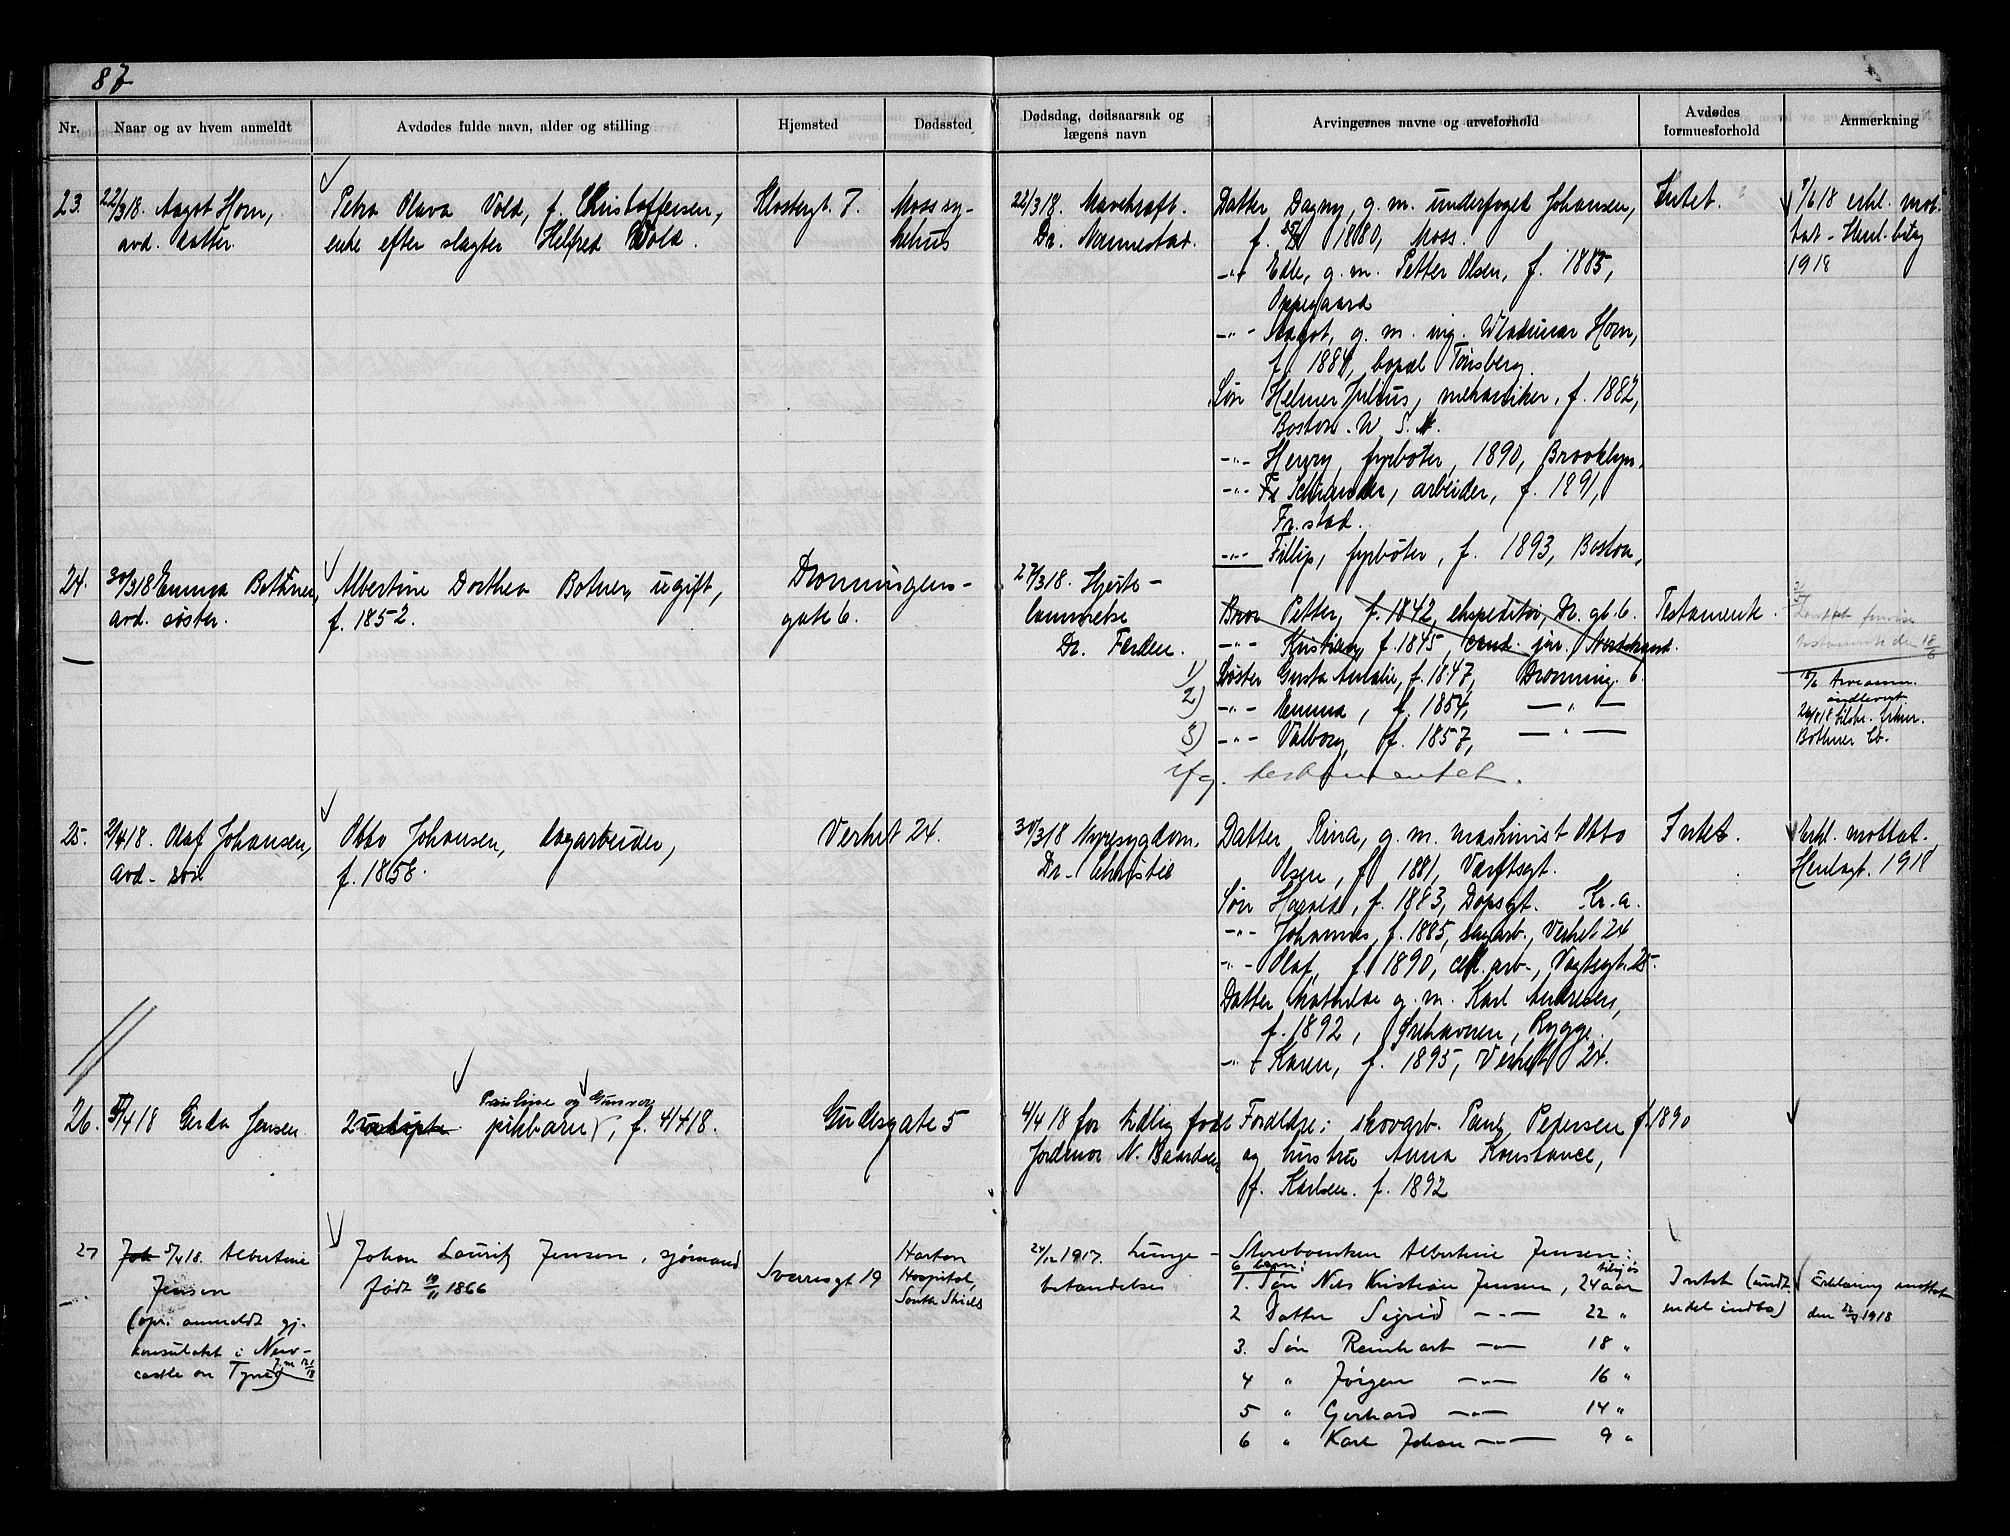 87
Nr.
Naar og av hvem anmeldt
Avdødes fulde navn, alder og stilling
Hjemsted
Dødssted
Dødsdag, dødsaarsak og
lægens navn
Arvingernes navne og arveforhold
Avdødes
formuesforhold
Anmerkning
23.
22/3 18. Aagot Horn,
avd. datter.
Petra Olava Vold, f. Christoffersen,
enke efter slagter Helfred Vold.
Klostergt. 7.
Moss sy-
kehus
22/3 18. Marekraft.
Dr. Nannestad.
Datter Dagny, g. m. underfoged Johansen,
f. 1880, Moss.
-"- Edle, g. m. Petter Olsen, f. 1885,
Oppegaard
-"- Aagot, g. m. ing. Wladimar Horn,
f. 1884, bopæl Tønsberg.
Søn Helmer Julius, mekaniker, f. 1882,
Boston. U. S. A.
-"- Henry, fyrbøter, 1890, Brooklyn.
-"- arbeider, f. 1891,
Fr.stad.
-"- Fillip, fyrbøter, f. 1893, Boston,
Intet.
7/6 18 erkl. mot-
tat - Henl. bilag
1918
24.
30/3 18 Emma Bothner,
avd. søster.
Albertine Dorthea Botner, ugift,
f. 1852.
Dronningens-
gate 6.
27/3 18. Hjerte-
lammelse
Dr. Ferden.
Bror Petter, f. 1842, ekspeditør, Dr. gt. 6.
-"- Kristian, f. 1845, cand. jur. Nordstrand.
1) Søster Gusta Amalie, f. 1847, Dronning. 6.
2) -"- Emma, f. 1854, -"-
3) -"- Valborg, f. 1857, -"-
ifg. testamentet.
Testamente.
testamente den 18/6
Bothner
25.
2/4 18. Olaf Johansen,
avd. søn
Otto Johansen, dagarbeider,
f. 1858.
Verket 24.
30/3 18 Nyresygdom.
Dr. Christie
Datter Rina, g. m. maskinist Otto
Olsen, f. 1881, Værftsgt.
Søn Harald, f. 1883, Dopsgt. Kr.a.
-"- Johannes, f. 1885, dagarb., Verket 24
-"- Olaf, f. 1890, cell. arb., Vogtsgt. 25.
Datter Mathilde g. m. Karl Andresen,
f. 1892, Ørehavnen, Rygge.
-"- Karen, f. 1895, Verket 24.
Intet.
Erkl. mottat.
Henlagt. 1918
26.
5/4 18 Gerda Jensen
Pauline og Gunvor
2 udøpte pikbarn, f. 4/4 18.
Gudesgate 5
4/4 18 for tidlig født
Jordmor N. Baardsen
Forældre: skovarb. Paul Pedersen f. 1890
og hustru Anna Konstance,
f. Karlsen. f. 1892
27
Joh 5/4 18. Albertine
Jensen
(opr. anmeldt gj.
konsulatet i New-
castle on Tyne)
Johan Lauritz Jensen, sjømand
født 19/11 1866
Sverresgt 19
Harton
Hospital,
South Shields
24/12 1917. Lunge-
betændelse
Styrboenken Albertine Jensen:
6 barn:
1. Søn Nils Kristian Jensen, 24 aar
2 Datter Sigrid -"- 22 "
3. Søn Reinhart -"- 18 "
4 " Jørgen -"- 16 "
5 " Gerhard -"- 14 "
6 " Karl Johan -"- 9 "
Intet (undt.
endel indbo)
Erklæring mottat
den 22/9 1918